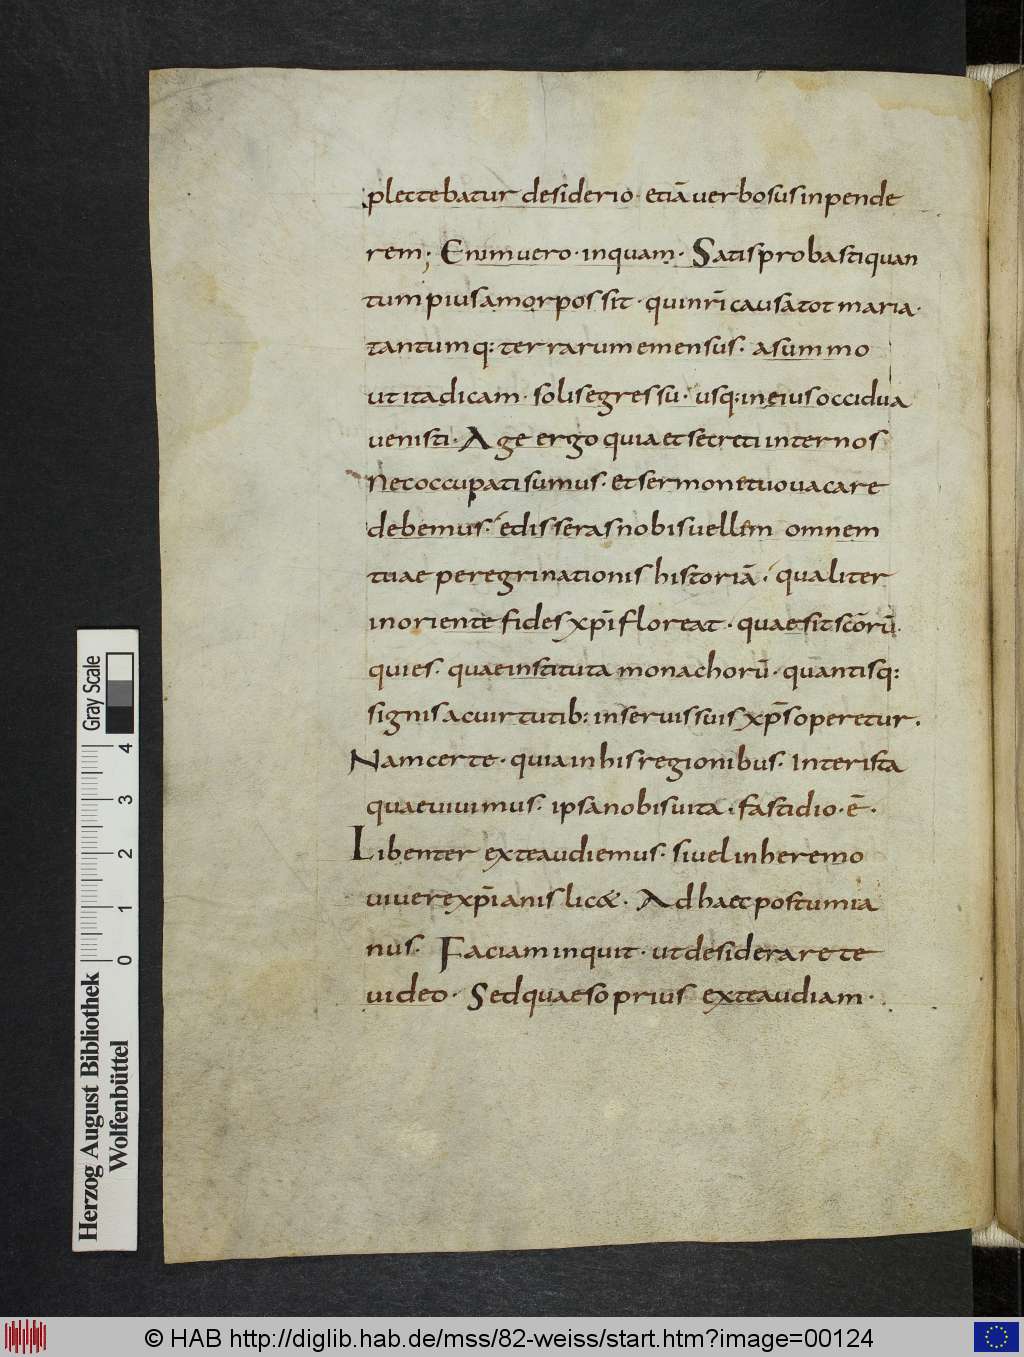 plectebatur desiderio· etiā uerbosus inpende
rem; Enim uero· inquam· Satis probasti quan
tum pius amor possit· qui nr̄i causa tot maria·
tantumq: terrarum emensus· a summo
ut ita dicam· solis egressu· usq: in eius occidua
uenisti· Age ergo quia et secreti inter nos
nec occupati sumus· et sermoni tuo uacare
debemus· edisseras nobis uellem omnem
tuae peregrinationis historiā· qualiter
in oriente fides xp̄i floreat· quae sit scōrū
quies· quae instituta monachorū· quantisq:
signis ac uirtutib: in seruis suis xp̄s operetur·
Nam certe· quia in his regionibus· Inter ista
quae uiuimus· ipsa nobis uita· fastidio· ē·
Libenter ex te audiemus· si uel in heremo
uiuere xp̄ianis lic&· Ad haec postumia
nus· Faciam inquit· ut desiderare te
uideo· Sed quaeso prius ex te audiam·
Gray Scale
4
3
2
1
0
Herzog August Bibliothek
Wolfenbüttel
© HAB http://diglib.hab.de/mss/82-weiss/start.htm?image=00124